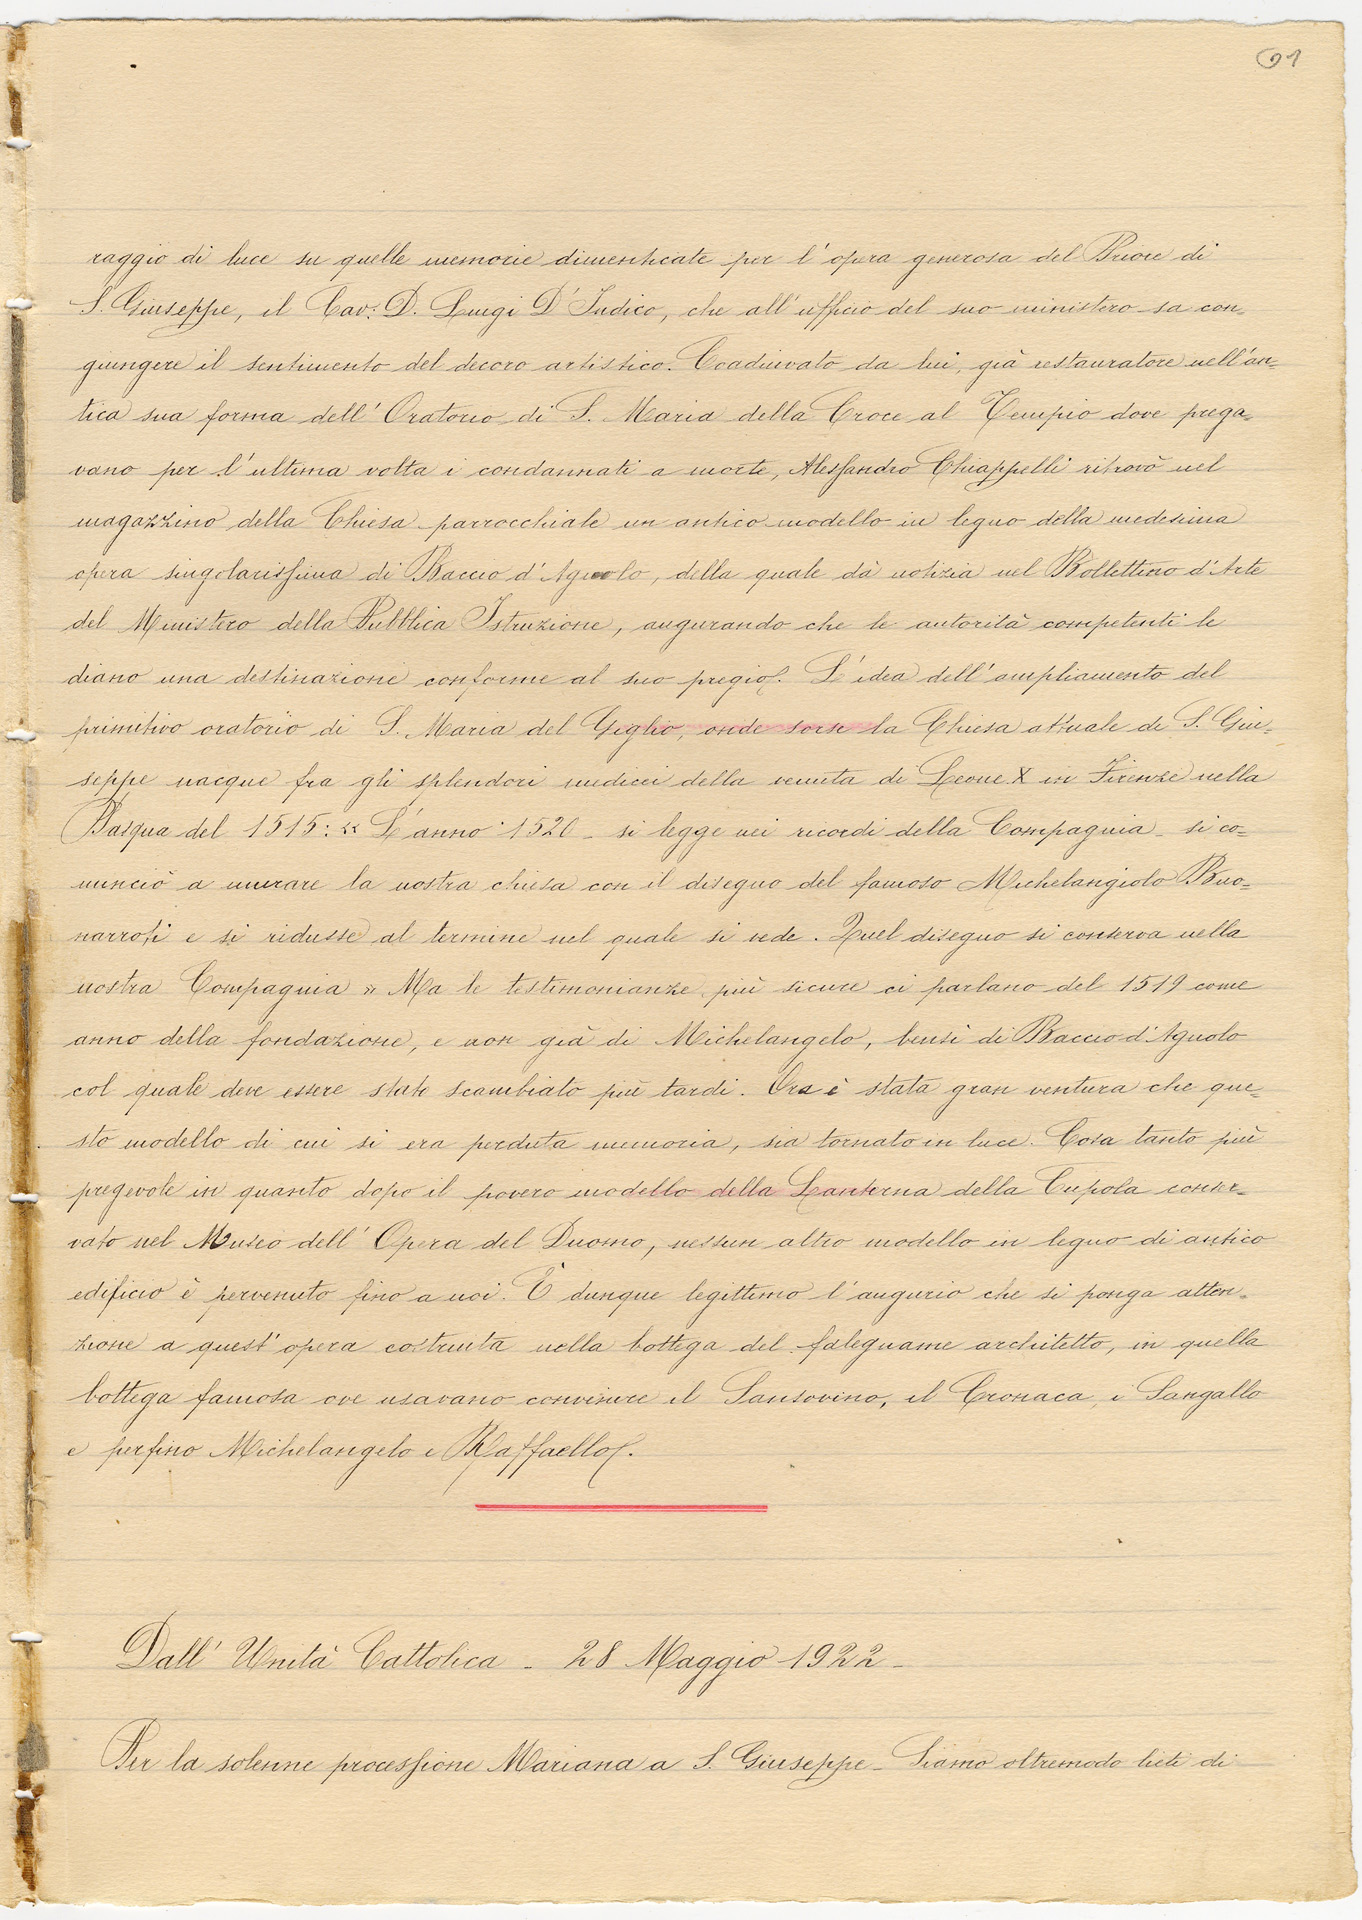 91
raggio di luce su quelle memorie dimenticate per l'opera generosa del Priore di
S. Giuseppe, il Cav: D. Luigi D'Indico, che all'ufficio del suo ministero sa con=
giungere il sentimento del decoro artistico. Coadiuvato da lui, già restauratore nell'an=
tica sua forma dell'Oratorio di S. Maria della Croce al Tempio dove prega=
vano per l'ultima volta i condannati a morte, Alessandro Chiappelli ritrovò nel
magazzino della Chiesa parrocchiale un antico modello in legno della medesima
opera singolarissima di Baccio d'Agnolo, della quale dà notizia nel Bollettino d'Arte
del Ministero della Pubblica Istruzione, augurando che le autorità competenti le
diano una destinazione conforme al suo pregio. L'idea dell'ampliamento del
primitivo oratorio di S. Maria del Giglio, onde sorse la Chiesa attuale di S. Giu=
seppe nacque fra gli splendori medicei della venuta di Leone X in Firenze nella
Pasqua del 1515: « L'anno 1520 - si legge nei ricordi della Compagnia - si co=
minciò a murare la nostra chiesa con il disegno del famoso Michelangiolo Buo=
narroti e si ridusse al termine nel quale si vede. Quel disegno si conserva nella
nostra Compagnia » Ma le testimonianze più sicure ci parlano del 1519 come
anno della fondazione, e non già di Michelangelo, bensì di Baccio d'Agnolo
col quale deve essere stato scambiato più tardi. Ora è stata gran ventura che que=
sto modello di cui si era perduta memoria, sia tornato in luce. Cosa tanto più
pregevole in quanto dopo il povero modello della Lanterna della Cupola conser=
vato nel Museo dell'Opera del Duomo, nessun altro modello in legno di antico
edificio è pervenuto fino a noi. È dunque legittimo l'augurio che si ponga atten=
zione a quest'opera costruita nella bottega del falegname architetto, in quella
bottega famosa ove usavano convenire il Sansovino, il Cronaca, i Sangallo
e perfino Michelangelo e Raffaello.
Dall'Unità Cattolica - 28 Maggio 1922 -
Per la solenne processione Mariana a S. Giuseppe - Siamo oltremodo lieti di